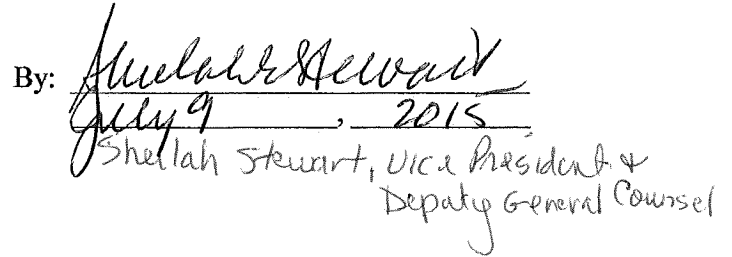 By: Sheilah Stewart
July 9, 2015
Sheilah Stewart, Vice President &
Deputy General Counsel